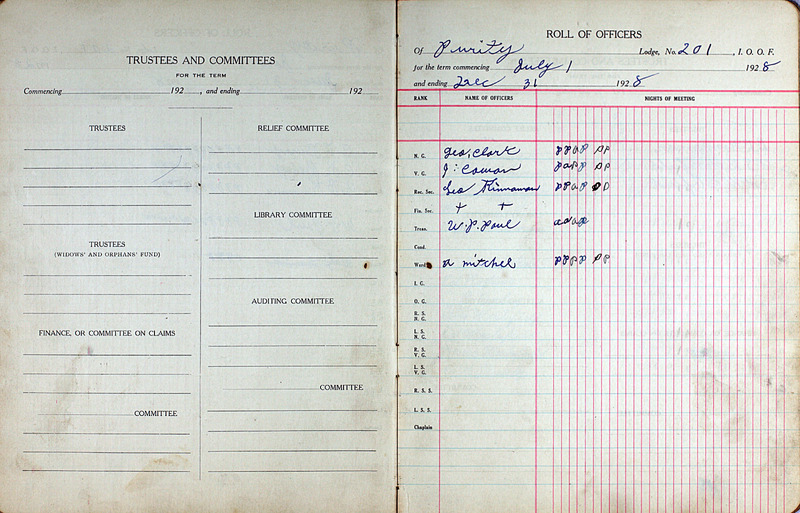 TRUSTEES AND COMMITTEES
FOR THE TERM
Commencing 192 , and ending 192
TRUSTEES
TRUSTEES
(WIDOWS' AND ORPHANS' FUND)
FINANCE, OR COMMITTEE ON CLAIMS
COMMITTEE
RELIEF COMMITTEE
LIBRARY COMMITTEE
AUDITING COMMITTEE
COMMITTEE
ROLL OF OFFICERS
Of Purity Lodge, No. 201 , I. O. O. F.
for the term commencing July 1 1928
and ending Dec 31 1928
RANK NAME OF OFFICERS NIGHTS OF MEETING
N. G. Geo, Clark p p a p p p
V. G. J : Cowan p a p p p p
Rec. Sec. Geo Kinnaman p p a p
Fin. Sec. + +
Treas. W. P. Paul a a a
Cond.
Ward. a mitchel p p p p p p
I. G.
O. G.
R. S. N. G.
L. S. N. G.
R. S. V. G.
L. S. V. G.
R. S. S.
L. S. S.
Chaplain